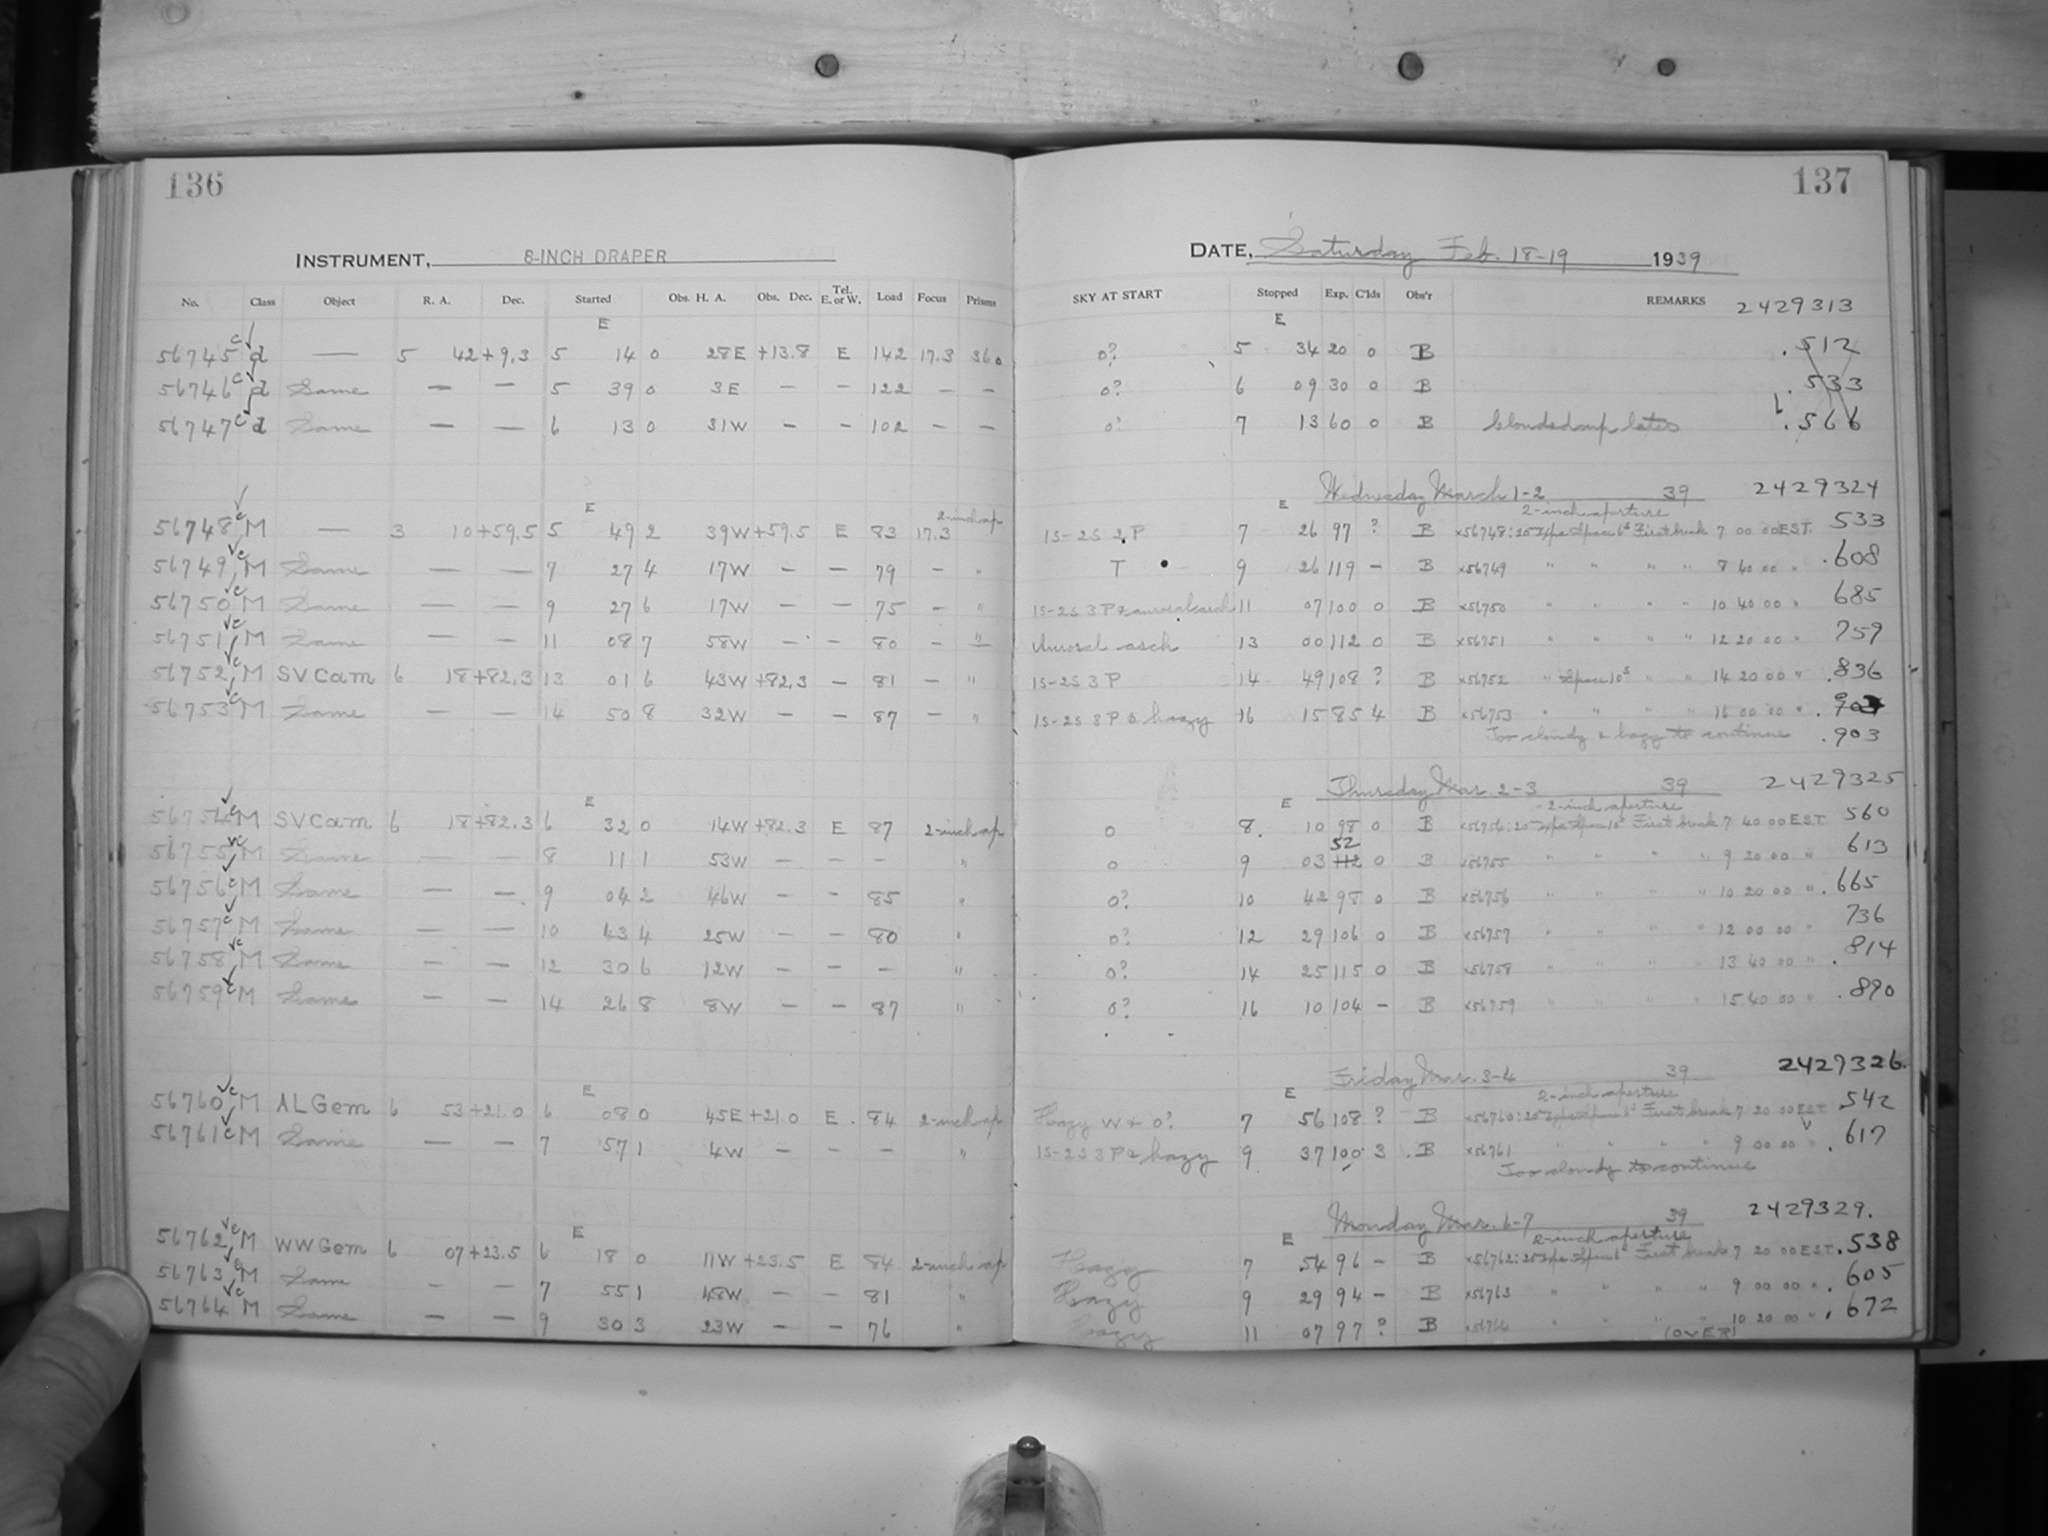 136
INSTRUMENT, 8-INCH DRAPER
No. Class Object R. A. Dec. Started Obs. H. A. Obs. Dec. Tel. E. or W. Load Focus Prisms
E
56745 c d — 5 42 +9.3 5 14 0 28E +13.8 E 142 17.3 360
56746 c d Same — — 5 39 0 3E — — 122 — —
56747 c d Same — — 6 13 0 31W — — 102 — —
E
56748 c M — 3 10 +59.5 5 49 2 39W +59.5 E 83 17.3 2-inch ap
56749 c M Same — — 7 27 4 17W — — 79 — "
56750 c M Same — — 9 27 6 17W — — 75 — "
56751 c M Same — — 11 08 7 58W — — 80 — "
56752 c M SV Cam 6 18 +82.3 13 01 6 43W +82.3 — 81 — "
56753 c M Same — — 14 50 8 32W — — 87 — "
E
56754 c M SV Cam 6 18 +82.3 6 32 0 14W +82.3 E 87 2-inch ap
56755 c M Same — — 8 11 1 53W — — — "
56756 c M Same — — 9 04 2 46W — — 85 "
56757 c M Same — — 10 43 4 25W — — 80 "
56758 c M Same — — 12 30 6 12W — — — "
56759 c M Same — — 14 26 8 8W — — 87 "
E
56760 c M AL Gem 6 53 +21.0 6 08 0 45E +21.0 E 84 2-inch ap
56761 c M Same — — 7 57 1 4W — — — "
E
56762 c M WW Gem 6 07 +23.5 6 18 0 11W +23.5 E 84 2-inch ap
56763 c M Same — — 7 55 1 48W — — 81 "
56764 c M Same — — 9 30 3 23W — — 76 "
137
DATE, Saturday Feb. 18-19 1939
SKY AT START Stopped Exp. C'lds Obs'r REMARKS 2429313
E
0? 5 34 20 0 B .512
0? 6 09 30 0 B .533
0? 7 13 60 0 B .566
Wednesday March 1-2 39 2429324
E 2-inch aperture
1S-2S 2P 7 26 97 ? B x56748: First break 7 00 00 EST. 533
T 9 26 119 — B x56749 " " " " 8 40 00 " .608
1S-2S 3P & auroral arch 11 07 100 0 B x56750 " " " " 10 40 00 " 685
Auroral arch 13 00 112 0 B x56751 " " " " 12 20 00 " 759
1S-2S 3P 14 49 108 ? B x56752 " Space 10s " " 14 20 00 " .836
1S-2S 3P & hazy 16 15 85 4 B x56753 " " " " 16 00 00 "
Too cloudy & hazy to continue .903
Thursday Mar. 2-3 39 2429325
E 2-inch aperture
0 8 10 98 0 B x56754: First break 7 40 00 EST. 560
0 9 03 52 0 B x56755 " " " " 9 20 00 " 613
0? 10 42 98 0 B x56756 " " " " 10 20 00 " .665
0? 12 29 106 0 B x56757 " " " " 12 00 00 " 736
0? 14 25 115 0 B x56758 " " " " 13 40 00 " .814
0? 16 10 104 — B x56759 " " " " 15 40 00 " .890
Friday Mar. 3-4 39 2429326.
E 2-inch aperture
Hazy W & 0? 7 56 108 ? B x56760: First break 7 20 00 EST. 542
1S-2S 3P & hazy 9 37 100 3 B x56761 " " " " 9 00 00 " .617
Too cloudy to continue
Monday Mar. 6-7 39 2429329.
E 2-inch aperture
Hazy 7 54 96 — B x56762: First break 7 20 00 EST. .538
Hazy 9 29 94 — B x56763 " " " " 9 00 00 " .605
Hazy 11 07 97 ? B x56764 " " " " 10 20 00 " .672
(OVER)